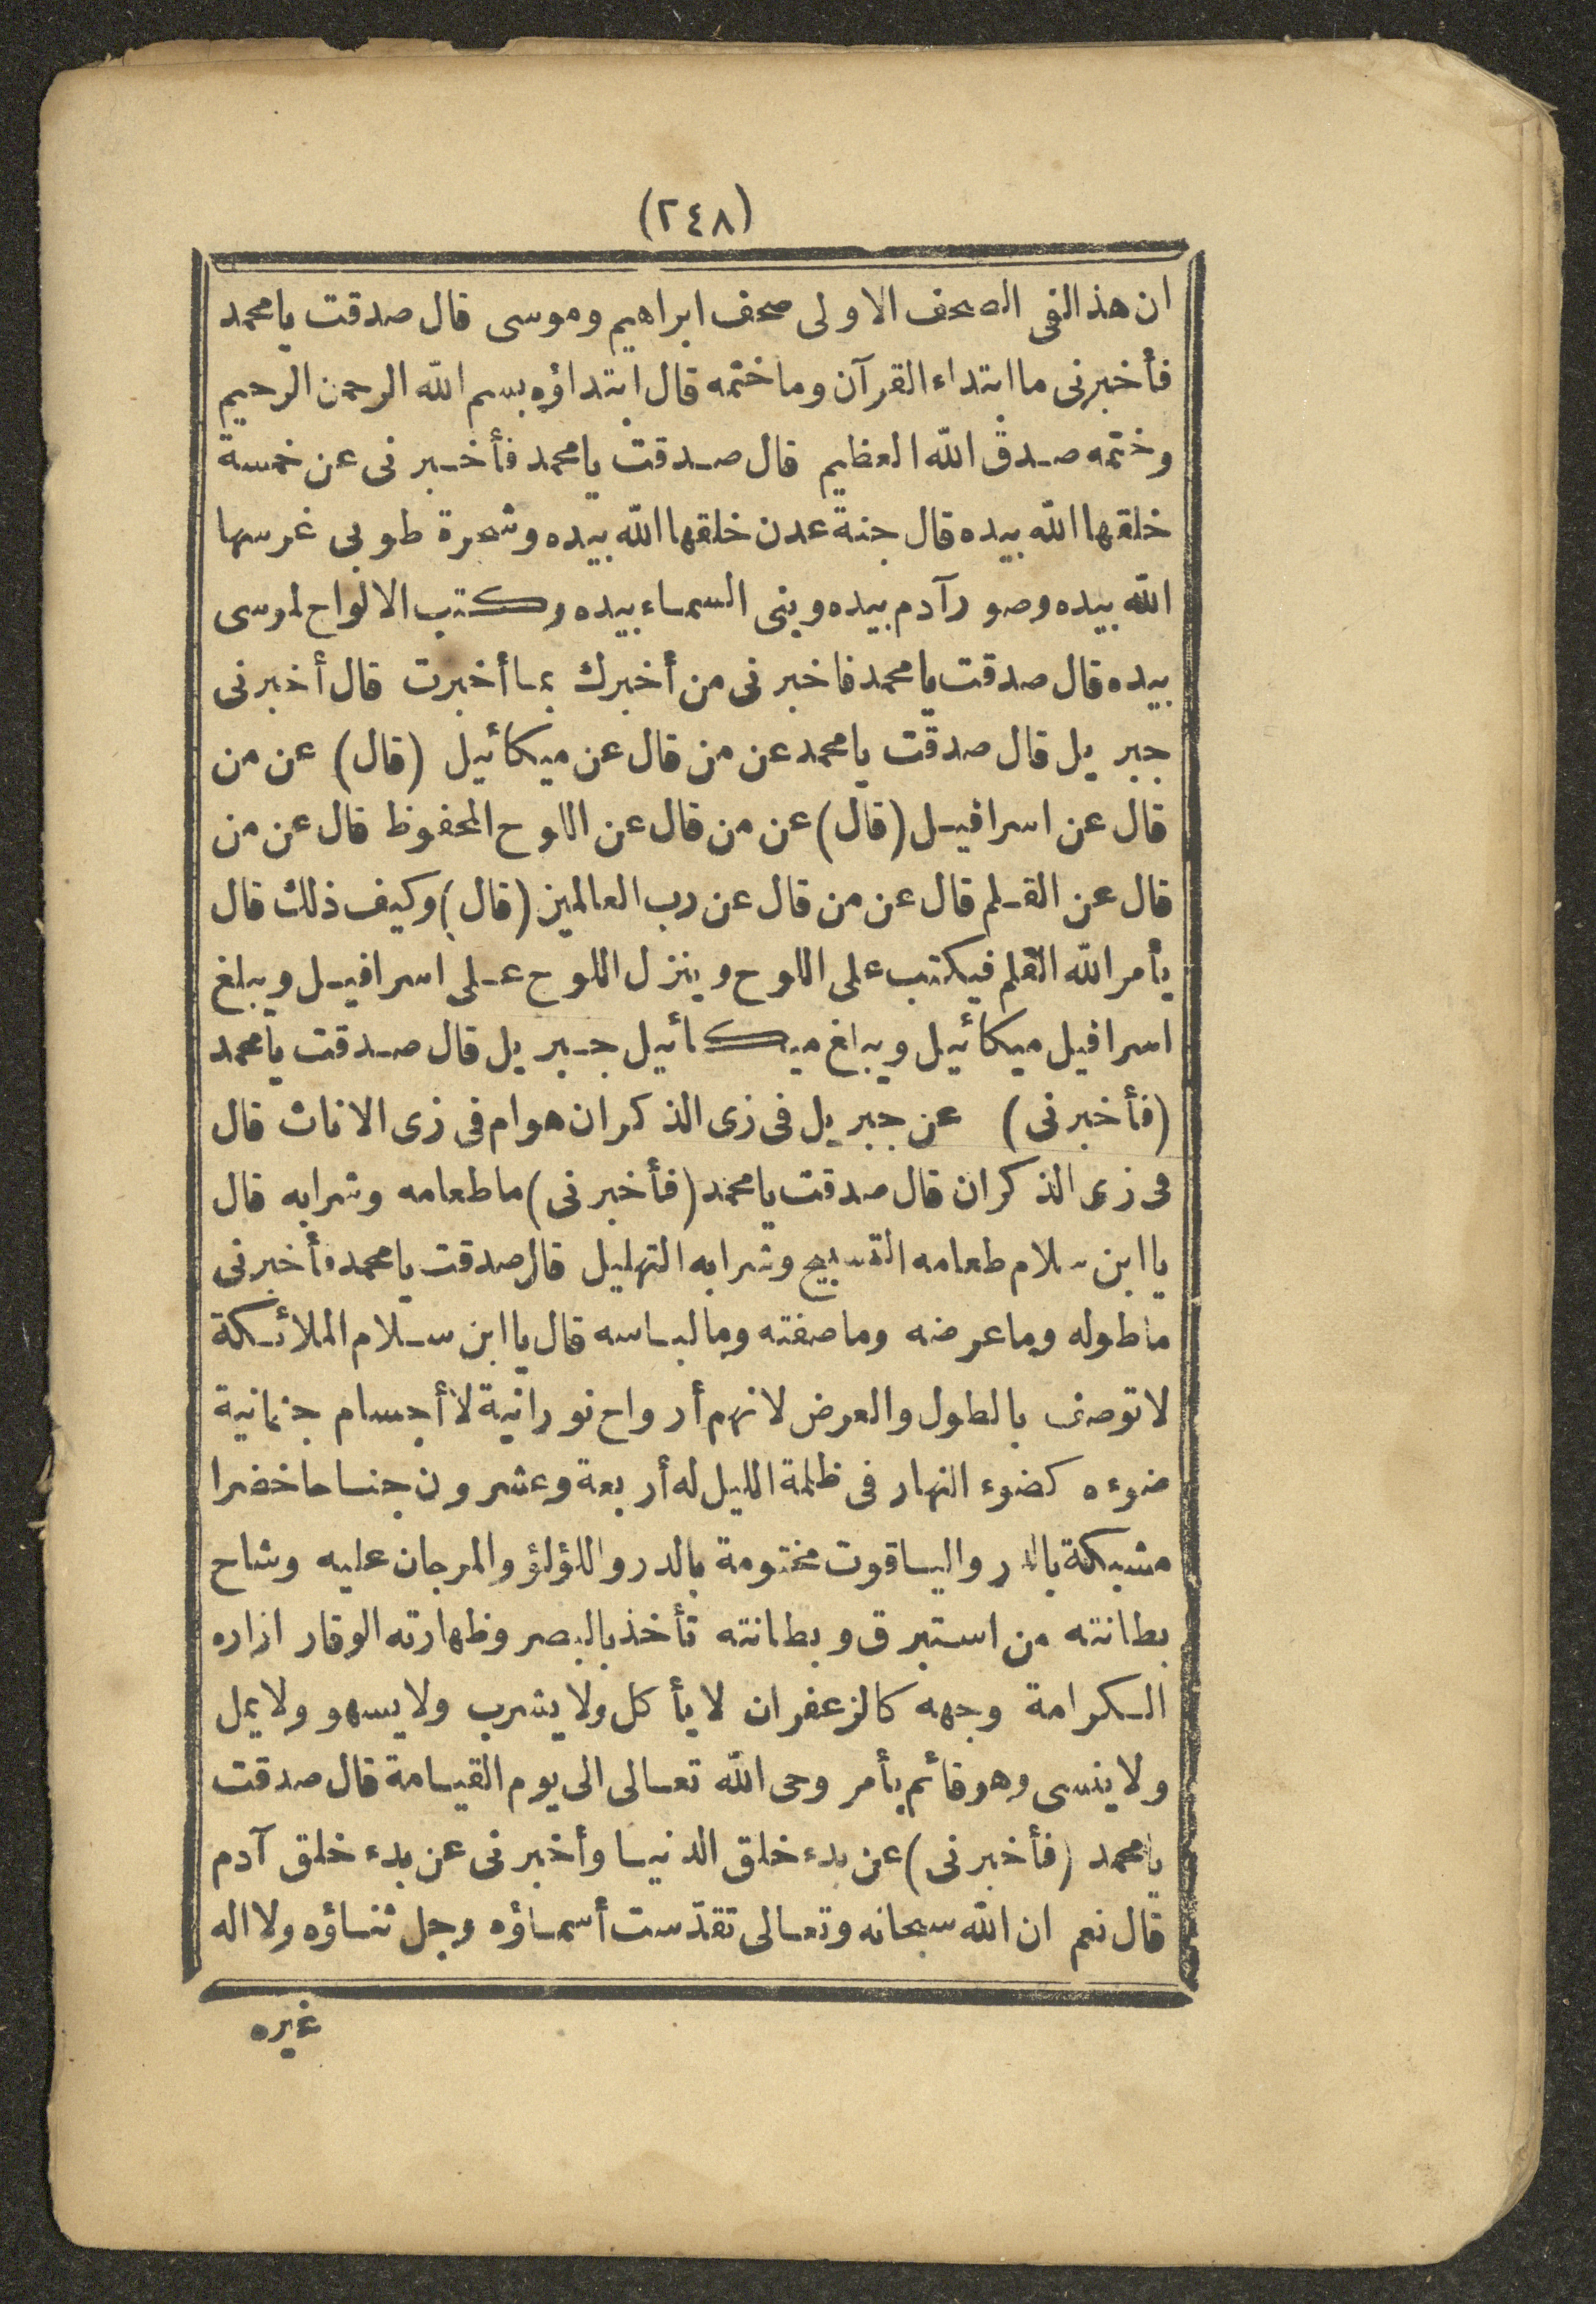 (٢٤٨)
ان هذا لفى الصحف الاولى صحف ابراهيم وموسى قال صدقت يا محمد
فأخبرنى ما ابتداء القرآن وما ختمه قال ابتداؤه بسم الله الرحمن الرحيم
وختمه صدق الله العظيم قال صدقت يا محمد فأخبرنى عن خمسة
خلقها الله بيده قال جنة عدن خلقها الله بيده وشجرة طوبى غرسها
الله بيده وصور آدم بيده وبنى السماء بيده وكتب الالواح لموسى
بيده قال صدقت يا محمد فاخبرنى من أخبرك بما أخبرت قال أخبرنى
جبريل قال صدقت يا محمد عن من قال عن ميكائيل (قال) عن من
قال عن اسرافيل (قال) عن من قال عن اللوح المحفوظ قال عن من
قال عن القلم قال عن من قال عن رب العالمين (قال) وكيف ذلك قال
يأمر الله القلم فيكتب على اللوح وينزل اللوح على اسرافيل ويبلغ
اسرافيل ميكائيل ويبلغ ميكائيل جبريل قال صدقت يا محمد
(فأخبرنى) عن جبريل فى زى الذكران هو ام فى زى الاناث قال
فى زى الذكران قال صدقت يا محمد (فأخبرنى) ما طعامه وشرابه قال
يا ابن سلام طعامه التسبيح وشرابه التهليل قال صدقت يا محمد فأخبرنى
ما طوله وما عرضه وما صفته وما لباسه قال يا ابن سلام الملائكة
لا توصف بالطول والعرض لانهم أرواح نورانية لا أجسام جثمانية
ضوءه كضوء النهار فى ظلمة الليل له أربعة وعشرون جناحا خضرا
مشبكة بالدر والياقوت مختومة بالدر واللؤلؤ والمرجان عليه وشاح
بطانته من استبرق وبطانته تأخذ بالبصر وظهارته الوقار ازاره
الكرامة وجهه كالزعفران لا يأكل ولا يشرب ولا يسهو ولا يمل
ولا ينسى وهو قائم بأمر وحى الله تعالى الى يوم القيامة قال صدقت
يا محمد (فأخبرنى) عن بدء خلق الدنيا وأخبرنى عن بدء خلق آدم
قال نعم ان الله سبحانه وتعالى تقدّست أسماؤه وجل ثناؤه ولا اله
غيره